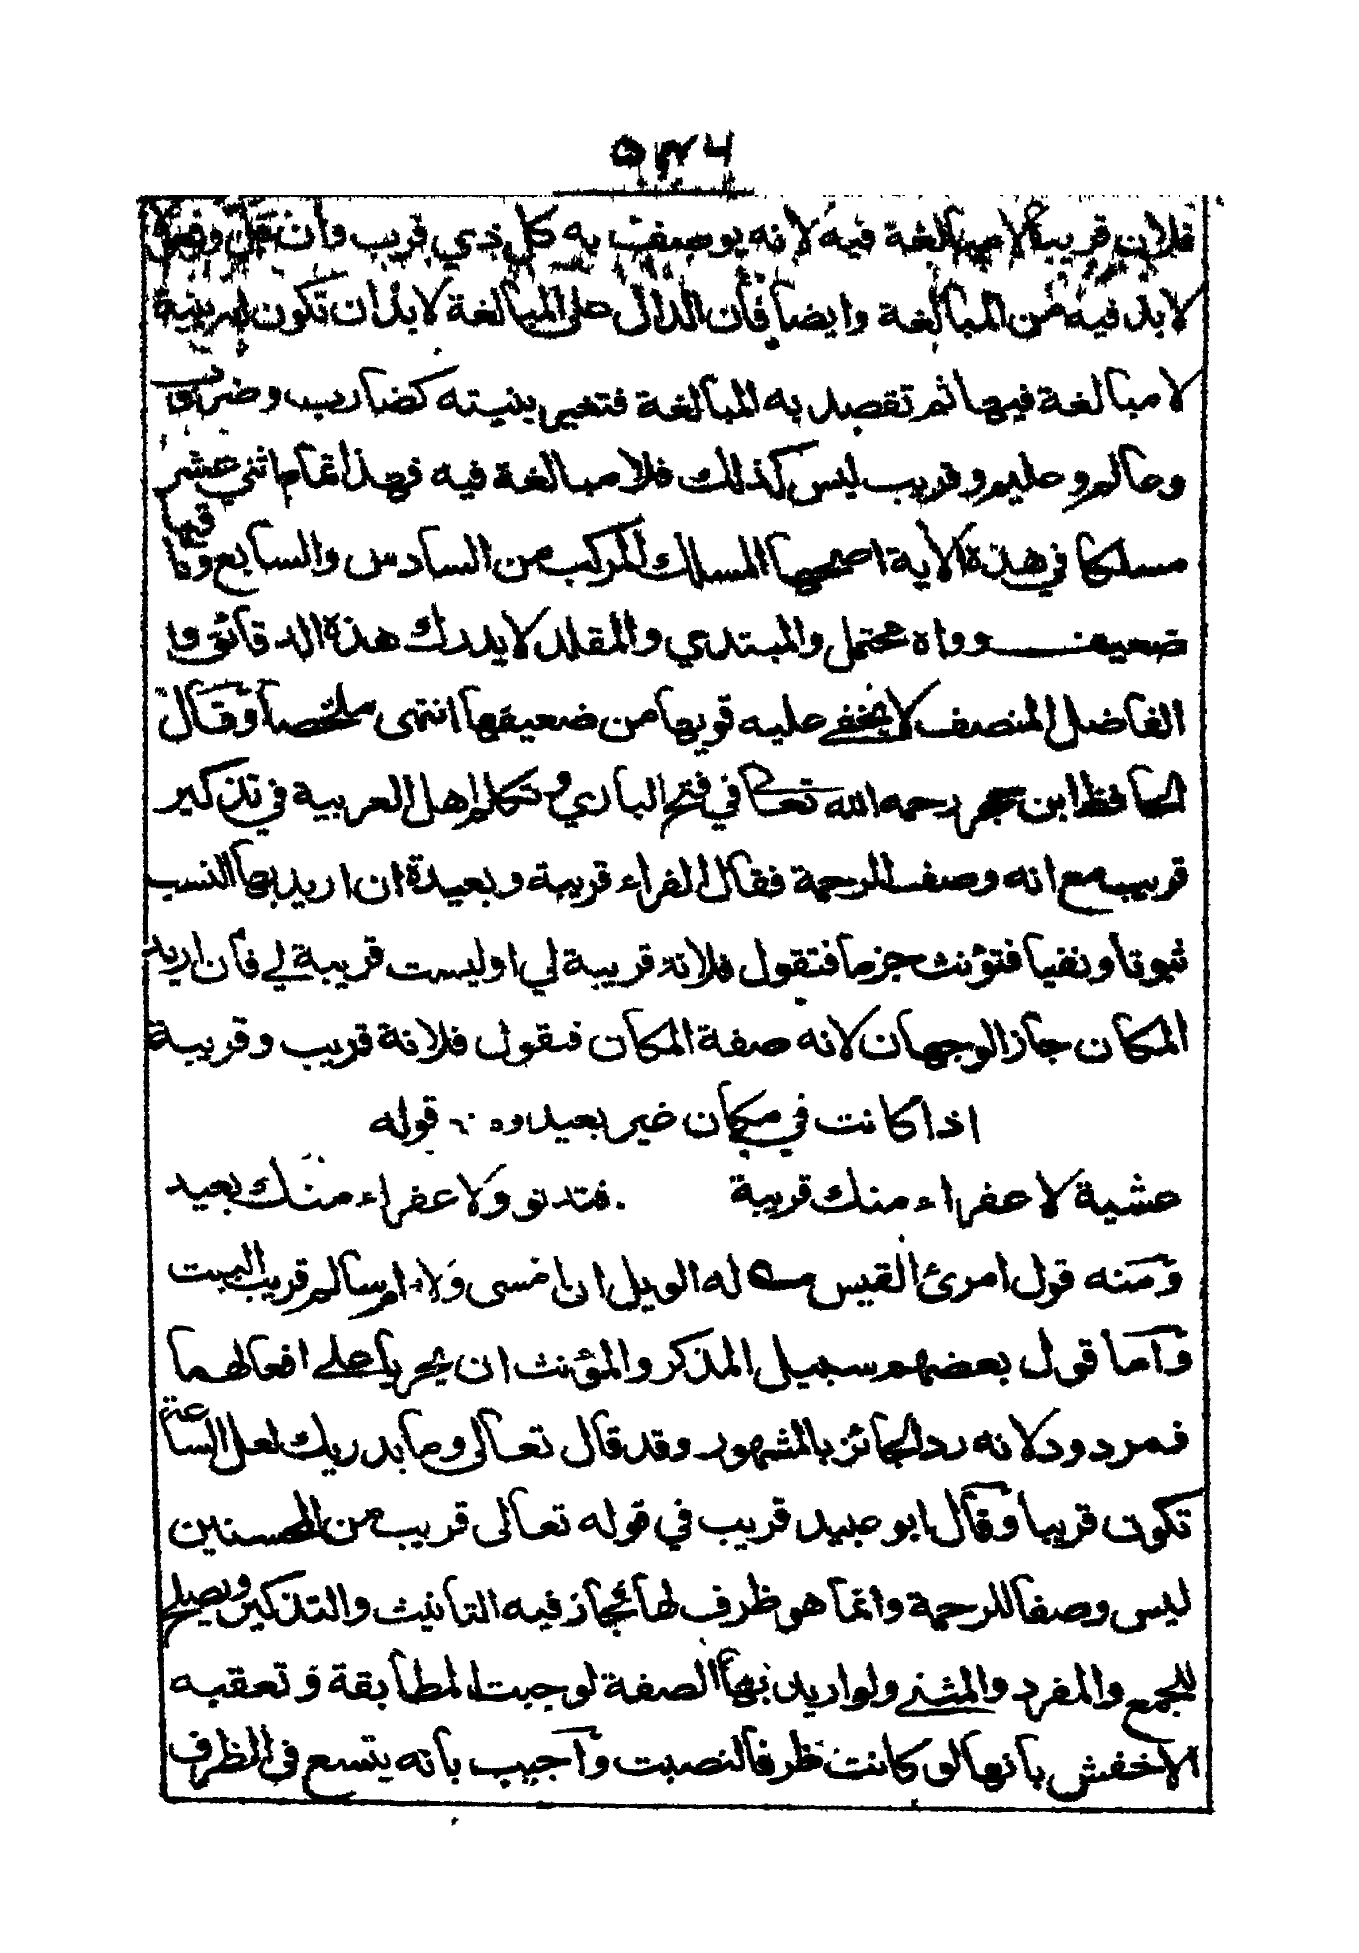 ٥٣٤
فلان قريبة لا مبالغة فيه لانه يوصف به كل ذي قرب وان قل وفعيل
لا بد فيه من المبالغة وايضا فان الدال على المبالغة لا بد ان تكون له بنية
لا مبالغة فيها ثم تقصد به المبالغة فتغير بنيته كضارب وضروب
وعالم وعليم وقريب ليس كذلك فلا مبالغة فيه فهذا تمام اثني عشر
مسلكا في هذه الاية اصحها المسلك المركب من السادس والسابع وباقيها
ضعيف وواه محتمل والمبتدي والمقلد لا يدرك هذه الدقائق وا
الفاضل المنصف لا يخفى عليه قويها من ضعيفها انتهى ملخصا وقال
الحافظ ابن حجر رحمه الله تعالى في فتح الباري وتكلم اهل العربية في تذكير
قريب مع انه وصف الرحمة فقال الفراء قريبة وبعيدة ان اريد بها النسب
ثبوتا ونفيا فتؤنث جزما فتقول فلانة قريبة لي او ليست قريبة لي فان اريد
المكان جاز الوجهان لانه صفة المكان فتقول فلانة قريب وقريبة
اذا كانت في مكان غير بعيد ومنه قوله
عشية لا عفراء منك قريبة فتدنو ولا عفراء منك بعيد
ومنه قول امرئ القيس له الويل ان امسى ولا ام سالم قريب البيت
واما قول بعضهم سبيل المذكر والمؤنث ان يجريا على افعالهما
فمردود لانه رد الجائز بالمشهور وقد قال تعالى وما يدريك لعل الساعة
تكون قريبا وقال ابو عبيد قريب في قوله تعالى قريب من المحسنين
ليس وصفا للرحمة وانما هو ظرف لها فجاز فيه التانيث والتذكير ويصلح
للجمع والمفرد والمثنى ولو اريد بها الصفة لوجبت المطابقة وتعقبه
الاخفش بانها لو كانت ظرفا لنصبت واجيب بانه يتسع في الظرف